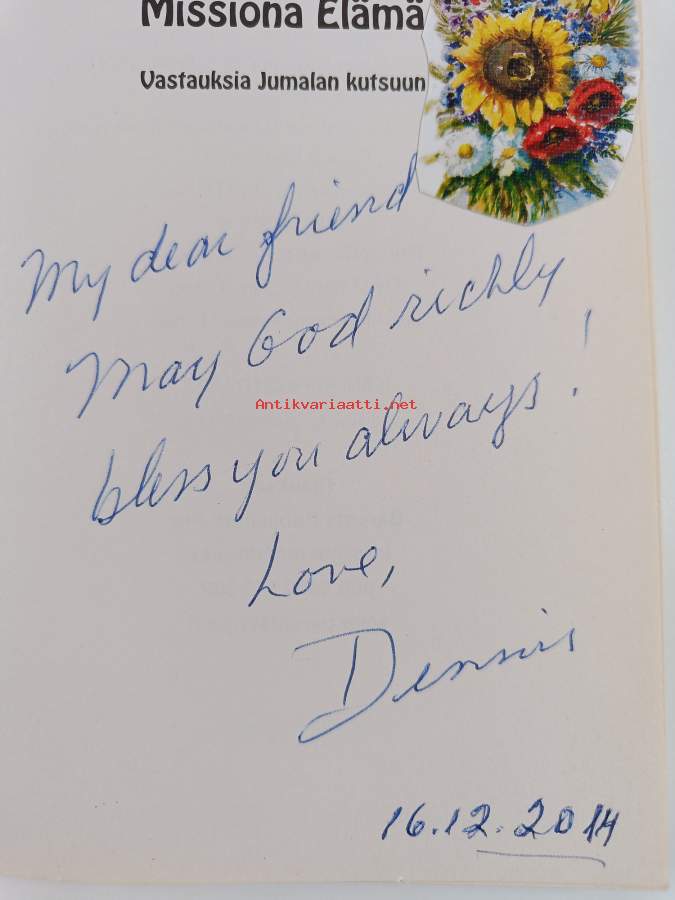 Missiona Elämä
Vastauksia Jumalan kutsuun
My dear friend
May God richly
Antikvariaatti.net
bless you always!
Love,
Dennis
16.12.2014